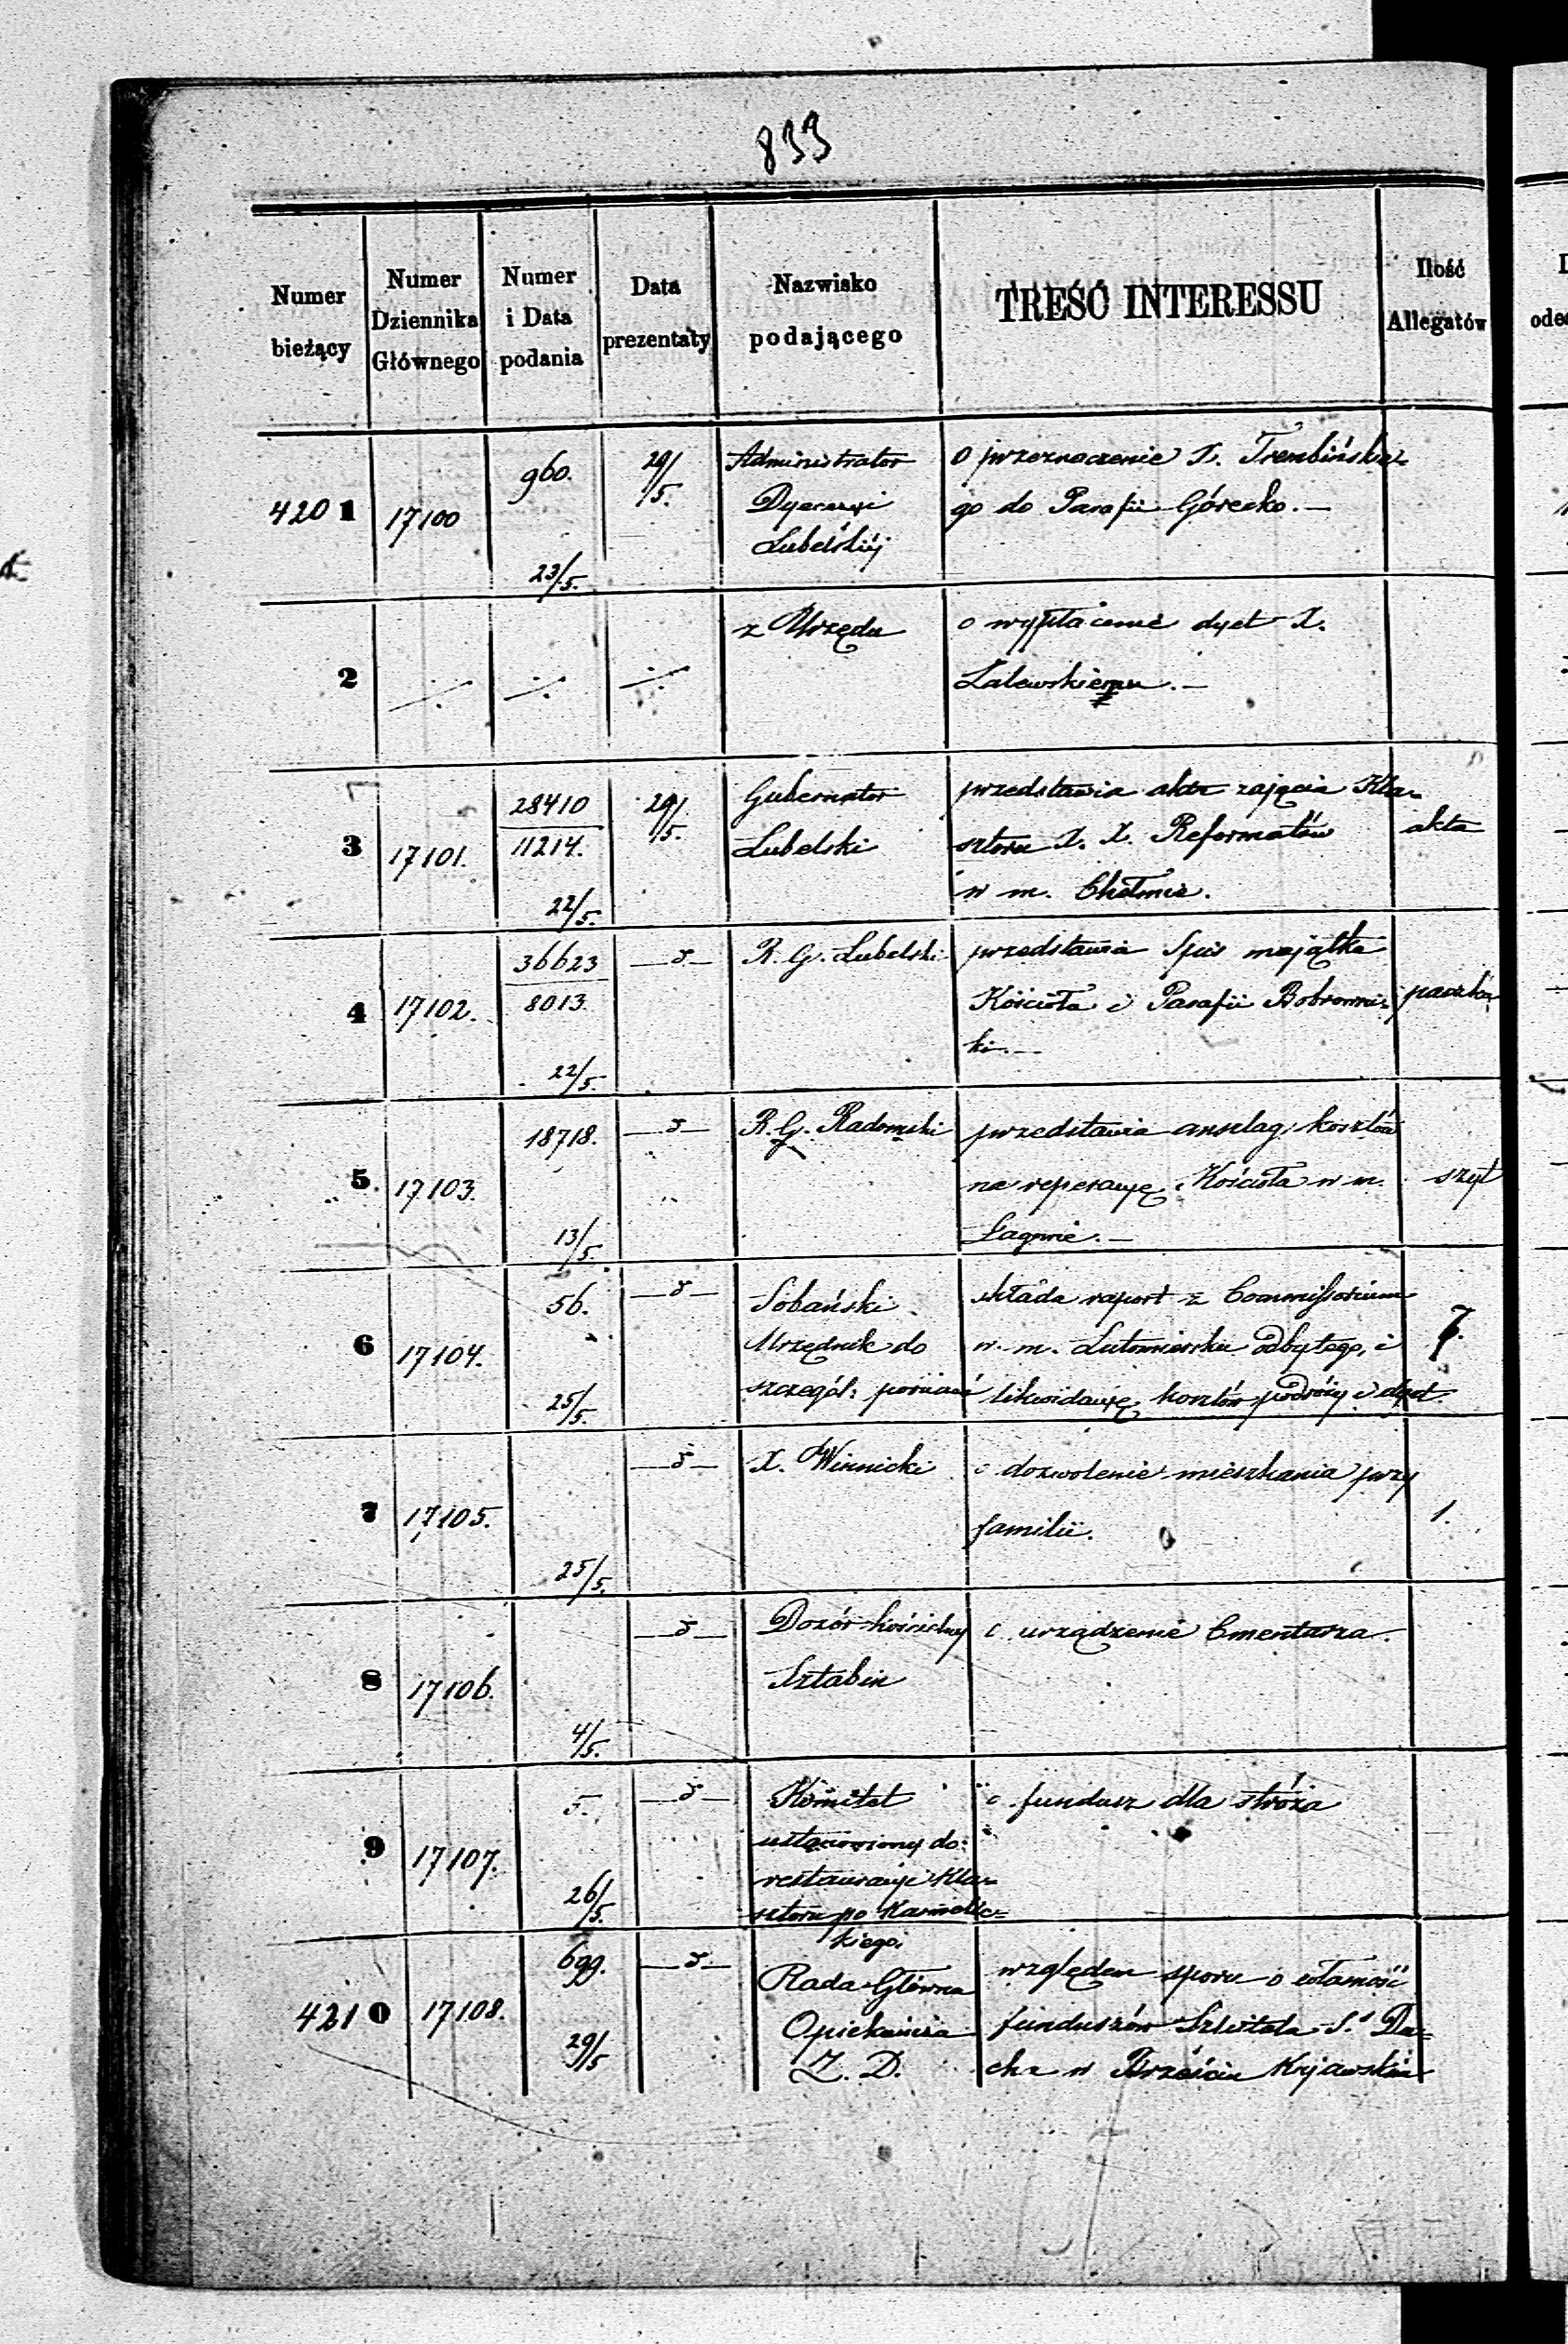 833
Numer bieżący
Numer Dziennika Głównego
Numer i Data podania
Data prezentaty
Nazwisko podającego
TREŚĆ INTERESSU
Ilość Allegatów
4201
17100
960.
23/5.
29/5.
Administrator
Dyecezyi
Lubelskiej
o przeznaczenie X. Trembińskie-
go do Parafii Górecko. —
2
z Urzędu
o wypłacenie dyet X.
Zalewskiemu. —
3
17101.
28410
11214.
22/5.
29/5.
Gubernator
Lubelski
przedstawia akta zajęcia Kla-
sztoru X. X. Reformatów
w m. Chełmie.
akta
4
17102.
36623
8013.
22/5.
R. G. Lubelski
przedstawia Spis majątku
Kościoła i Parafii Bobrowni-
ki. —
paczka
5
17103.
18718.
13/5.
R. G. Radomski
przedstawia anszlag kosztów
na reperacyę Kościoła w m.
Łagowie. —
szyt
6
17104.
56.
25/5.
Sobański
Urzędnik do
szczegól: poruczeń
składa raport z Commissorium
w m. Lutomiersku odbytego, i
likwidacyę kosztów podróży i dyet.
7.
7
17105.
25/5.
X. Winnicki
o dozwolenie mieszkania przy
familii.
1.
8
17106.
4/5.
Dozór kościelny
Sztabin
o urządzenie Cmentarza.
9
17107.
5.
26/5.
Komitet
ustanowiony do
restauracyi Kla-
sztoru po Karmelic-
kiego.
o fundusz dla stróża
4210
17108.
699.
29/5
Rada Główna
Opiekuńcza
Z. D.
względem sporu o własność
funduszów Szpitala S. Du-
cha w Brześciu Kujawskim